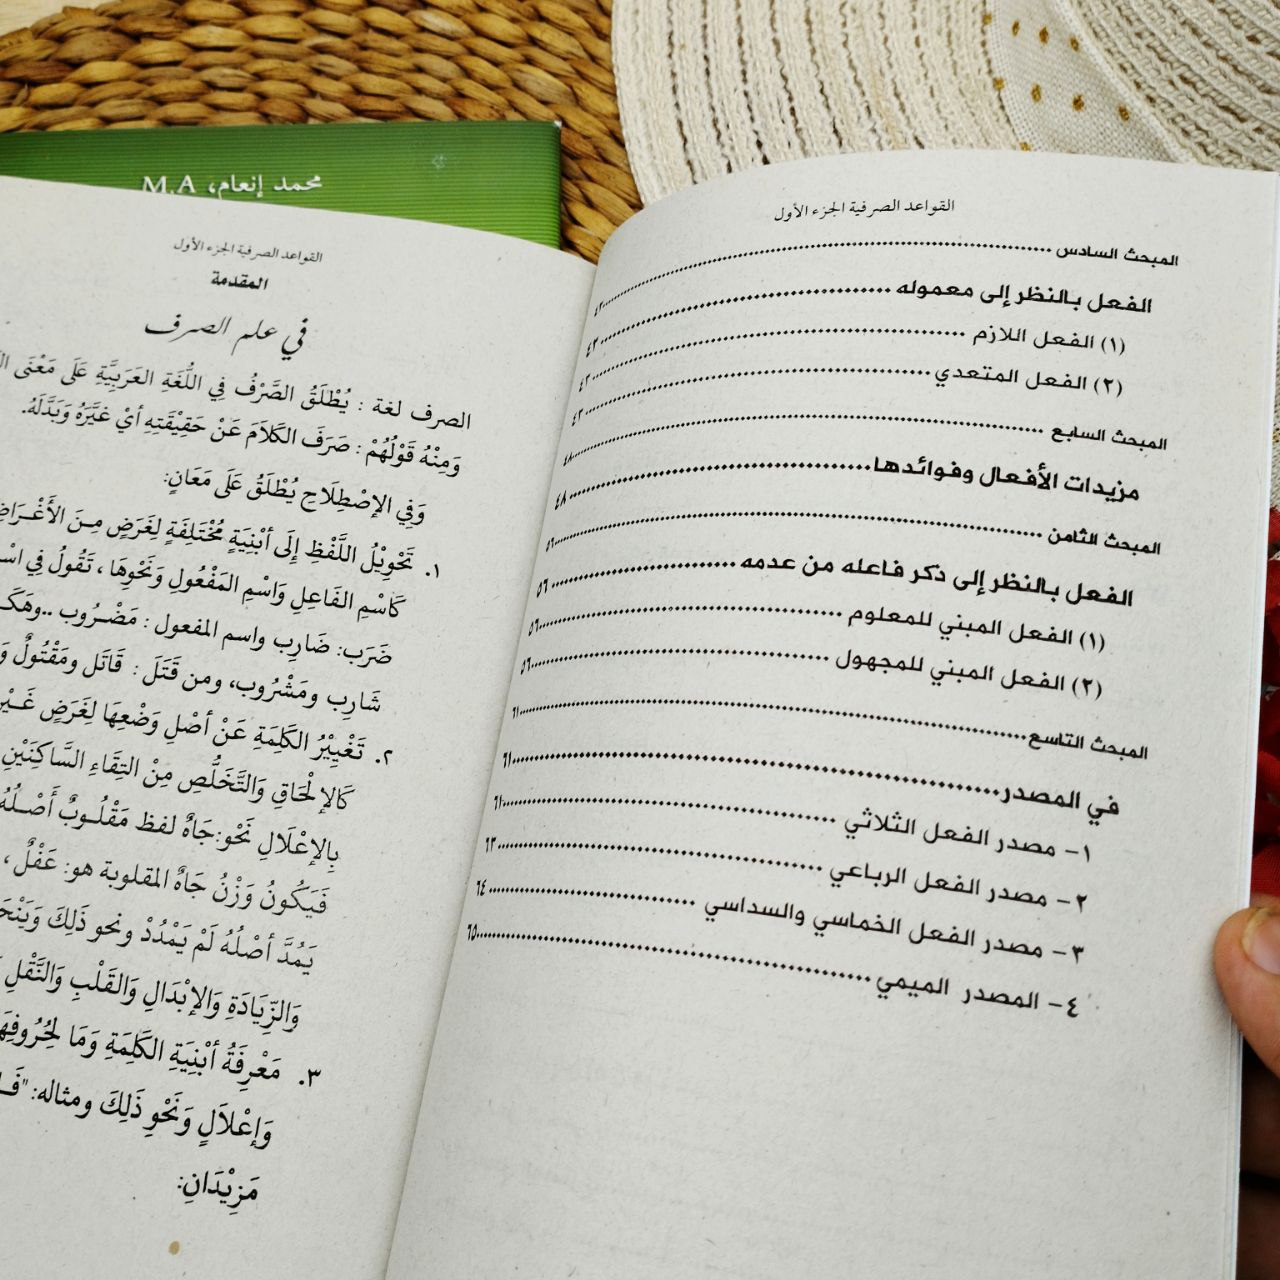 محمد إنعام، M.A
القواعد الصرفية الجزء الأول
المبحث السادس ٤٢
الفعل بالنظر إلى معموله ٤٣
(١) الفعل اللازم ٤٣
(٢) الفعل المتعدي ٤٣
المبحث السابع ٤٨
مزيدات الأفعال وفوائدها ٤٨
المبحث الثامن ٥٦
الفعل بالنظر إلى ذكر فاعله من عدمه ٥٦
(١) الفعل المبني للمعلوم ٥٦
(٢) الفعل المبني للمجهول ٥٦
المبحث التاسع ٦١
في المصدر ٦١
١- مصدر الفعل الثلاثي ٦١
٢- مصدر الفعل الرباعي ٦٣
٣- مصدر الفعل الخماسي والسداسي ٦٤
٤- المصدر الميمي ٦٥
القواعد الصرفية الجزء الأول
المقدمة
في علم الصرف
الصرف لغة : يُطْلَقُ الصَّرْفُ فِي اللُّغَةِ العَرَبِيَّةِ عَلَى مَعْنَى
وَمِنْهُ قَوْلُهُمْ : صَرَفَ الكَلَامَ عَنْ حَقِيْقَتِهِ أيْ غَيَّرَهُ وَبَدَّلَهُ.
وَفِي الإصْطِلَاحِ يُطْلَقُ عَلَى مَعَانٍ:
١. تَحْوِيْلُ اللَّفْظِ إِلَى أبْنِيَةٍ مُخْتَلِفَةٍ لِغَرَضٍ مِنَ الأَغْرَاضِ
كَاسْمِ الفَاعِلِ وَاسْمِ المَفْعُولِ وَنَحْوِهَا ، تَقُولُ فِي
ضَرَب: ضَارِب واسم المفعول : مَضْرُوب ..
شَارِب ومَشْرُوب، ومن قَتَلَ : قَاتَل ومَقْتُولٌ
٢. تَغْيِيْرُ الكَلِمَةِ عَنْ أصْلِ وَضْعِهَا لِغَرَضٍ
كَالإلْحَاقِ وَالتَّخَلُّصِ مِنْ التِقَاءِ السَّاكِنَيْنِ
بِالإعْلَالِ نَحْو:جَاهٌ لفظ مَقْلُوبٌ أَصْلُهُ
فَيَكُونُ وَزْنُ جَاهٌ المقلوبة هو: عَفْلٌ ،
يَمُدَّ أصْلُهُ لَمْ يَمْدُدْ ونحو ذَلِكَ
وَالزِّيَادَةِ وَالإبْدَالِ وَالقَلْبِ وَالنَّقْلِ
٣. مَعْرِفَةُ أبْنِيَةِ الكَلِمَةِ وَمَا لِحُرُوفِهَا
وَإعْلاَلٍ وَنَحْوِ ذَلِكَ ومثاله:
مَزِيْدَانِ: